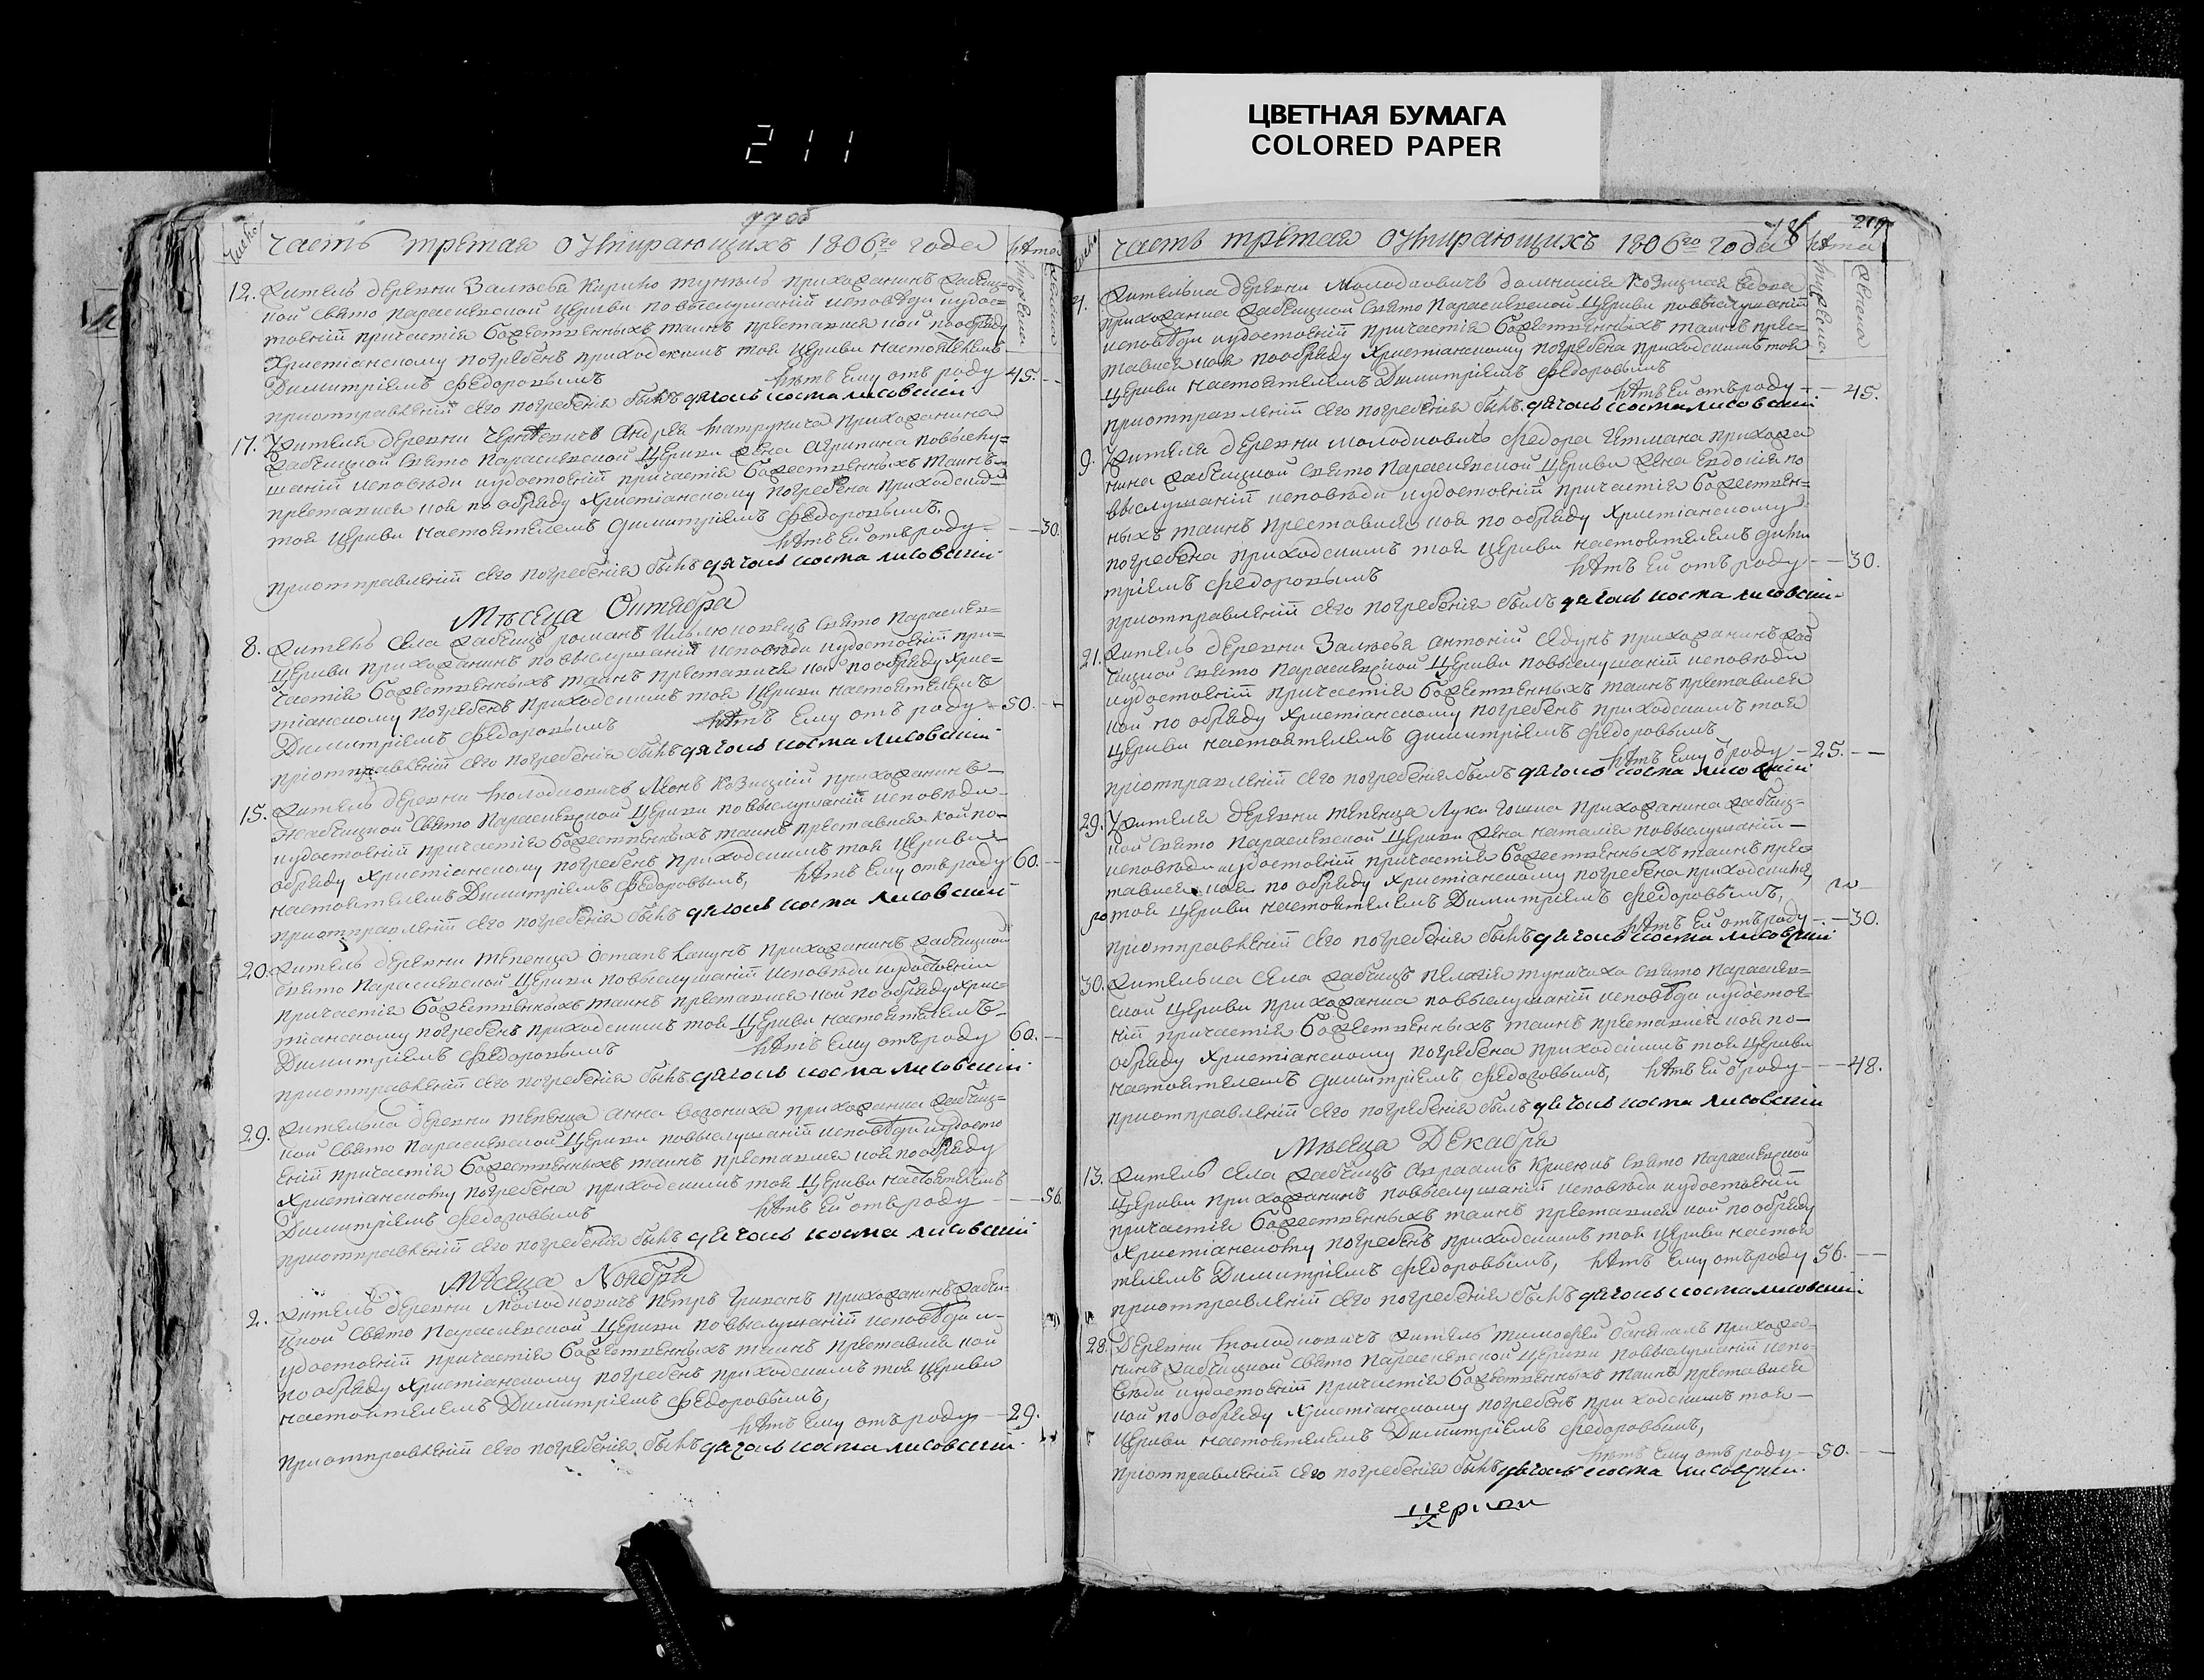 211
ЦВЕТНАЯ БУМАГА
COLORED PAPER
Число
Часть третая о умирающихъ 1806го года
Лѣта
мужеска
женска
12. Житель деревни Залѣсья Кирило приходанинъ Жабчиц-
кой Свято Параскевской Церкви повыслушаніи исповѣди иудос-
тоеніи причастія Божественныхъ таинъ преставися кой пообряду
Христіанскому погребенъ приходскимъ тоя Церкви настоятелемъ
Димитріемъ Федоровымъ лѣтъ ему отъ роду 45.
приотправленіи сего погребенія былъ дячокъ косма лисовскій
17. Жителя деревни Андрея приходанина
Жабчицкой Свято Параскевской Церкви жена Агрипина повыслу-
шаніи исповѣди иудостоеніи причастія Божественныхъ таинъ
преставися коя по обряду Христіанскому погребена приходским
тоя Церкви настоятелемъ Димитріемъ Федоровымъ,
лѣтъ ей отъ роду 30.
приотправленіи сего погребенія былъ дячокъ косма лисовскій
Мѣсяца Октября
8. Житель села Жабчицъ романъ Свято Параскев-
Церкви приходанинъ повыслушаніи исповѣди иудостоеніи при-
частія Божественныхъ таинъ преставися кой пообряду Хрис-
тіанскому погребенъ приходскимъ тоя Церкви настоятелемъ
Димитріемъ Федоровымъ лѣтъ ему отъ роду 50.
приотправленіи сего погребенія былъ дячокъ косма лисовскій
15. Житель деревни Молодковичъ Леонъ Козицкій приходанинъ
Жабчицкой Свято Параскевской Церкви повыслушаніи исповѣди
иудостоеніи причастія Божественныхъ таинъ преставися кой по-
обряду Христіанскому погребенъ приходскимъ тоя Церкви
настоятелемъ Димитріемъ Федоровымъ, лѣтъ ему отъ роду 60.
приотправленіи сего погребенія былъ дячокъ косма лисовскій
20. Житель деревни Тепенца Остапъ приходанинъ Жабчицкой
Свято Параскевской Церкви повыслушаніи исповѣди иудостоеніи
причастія Божественныхъ таинъ преставися кой по обряду Хрис-
тіанскому погребенъ приходскимъ тоя Церкви настоятелемъ
Димитріемъ Федоровымъ лѣтъ ему отъ роду 60.
приотправленіи сего погребенія былъ дячокъ косма лисовскій
29. Жителька деревни Тепенца Анна приходанка Жабчиц-
кой Свято Параскевской Церкви повыслушаніи исповѣди иудосто
еніи причастія Божественныхъ таинъ преставися коя пообряду
Христіанскому погребена приходскимъ тоя Церкви настоятелемъ
Димитріемъ Федоровымъ лѣтъ ей отъ роду 56.
приотправленіи сего погребенія былъ дячокъ косма лисовскій
Мѣсяца Ноября
2. Житель деревни Молодковичъ Петръ приходанинъ Жабчи-
цкой Свято Параскевской Церкви повыслушаніи исповѣди и-
удостоеніи причастія Божественныхъ таинъ преставися кой
по обряду Христіанскому погребенъ приходскимъ тоя Церкви
настоятелемъ Димитріемъ Федоровымъ,
лѣтъ ему отъ роду 29.
приотправленіи сего погребенія былъ дячокъ косма лисовскій
Число
Часть третая о умирающихъ 1806го года
Лѣта
мужеска
женска
4. Жителька деревни Молодковичъ Домникія Козицкая вдова
приходанка Жабчицкой Свято Параскевской Церкви повыслушаніи
исповѣди иудостоеніи причастія Божественныхъ таинъ прес-
тавися коя пообряду Христіанскому погребена приходскимъ тоя
Церкви настоятелемъ Димитріемъ Федоровымъ
лѣтъ ей отъ роду 45.
приотправленіи сего погребенія былъ дячокъ косма лисовскій
9. Жителя деревни Молодковичъ Федора Гетмана прихода
нина Жабчицкой Свято Параскевской Церкви жена Евдокія по
выслушаніи исповѣди иудостоеніи причастія Божествен-
ныхъ таинъ преставися коя по обряду Христіанскому
погребена приходскимъ тоя Церкви настоятелемъ Дими
тріемъ Федоровымъ лѣтъ ей отъ роду 30.
приотправленіи сего погребенія былъ дячокъ косма лисовскій
21. Житель деревни Залѣсья Антоній приходанинъ Жаб
чицкой Свято Параскевской Церкви повыслушаніи исповѣди
иудостоеніи причастія Божественныхъ таинъ преставися
кой по обряду Христіанскому погребенъ приходскимъ тоя
Церкви настоятелемъ Димитріемъ Федоровымъ
лѣтъ ему о роду 25.
приотправленіи сего погребенія былъ дячокъ косма лисовскій
29. Жителя деревни Тепенца Луки приходанина Жабчиц-
кой Свято Параскевской Церкви жена Наталія повыслушаніи
исповѣди иудостоеніи причастія Божественныхъ таинъ прес-
тавися коя по обряду Христіанскому погребена приходскимъ
тоя Церкви настоятелемъ Димитріемъ Федоровымъ,
лѣтъ ей отъ роду 30.
приотправленіи сего погребенія былъ дячокъ косма лисовскій
30. Жителька села Жабчицъ Пелагія Свято Параскев-
ской Церкви приходанка повыслушаніи исповѣди иудостое-
ніи причастія Божественныхъ таинъ преставися коя по-
обряду Христіанскому погребена приходскимъ тоя Церкви
настоятелемъ Димитріемъ Федоровымъ, лѣтъ ей о роду 48.
приотправленіи сего погребенія былъ дячокъ косма лисовскій
Мѣсяца Декабря
13. Житель села Жабчицъ Авраамъ Свято Параскевской
Церкви приходанинъ повыслушаніи исповѣди иудостоеніи
причастія Божественныхъ таинъ преставися кой по обряду
Христіанскому погребенъ приходскимъ тоя Церкви настоя
телемъ Димитріемъ Федоровымъ, лѣтъ ему отъ роду 56.
приотправленіи сего погребенія былъ дячокъ косма лисовскій
28. Деревни Молодковичъ житель Тимофей приходя-
нинъ Жабчицкой Свято Параскевской Церкви повыслушаніи испо-
вѣди иудостоеніи причастія Божественныхъ таинъ преставися
кой по обряду Христіанскому погребенъ приходскимъ тоя
Церкви настоятелемъ Димитріемъ Федоровымъ,
лѣтъ ему отъ роду 50.
приотправленіи сего погребенія былъ дячокъ косма лисовскій